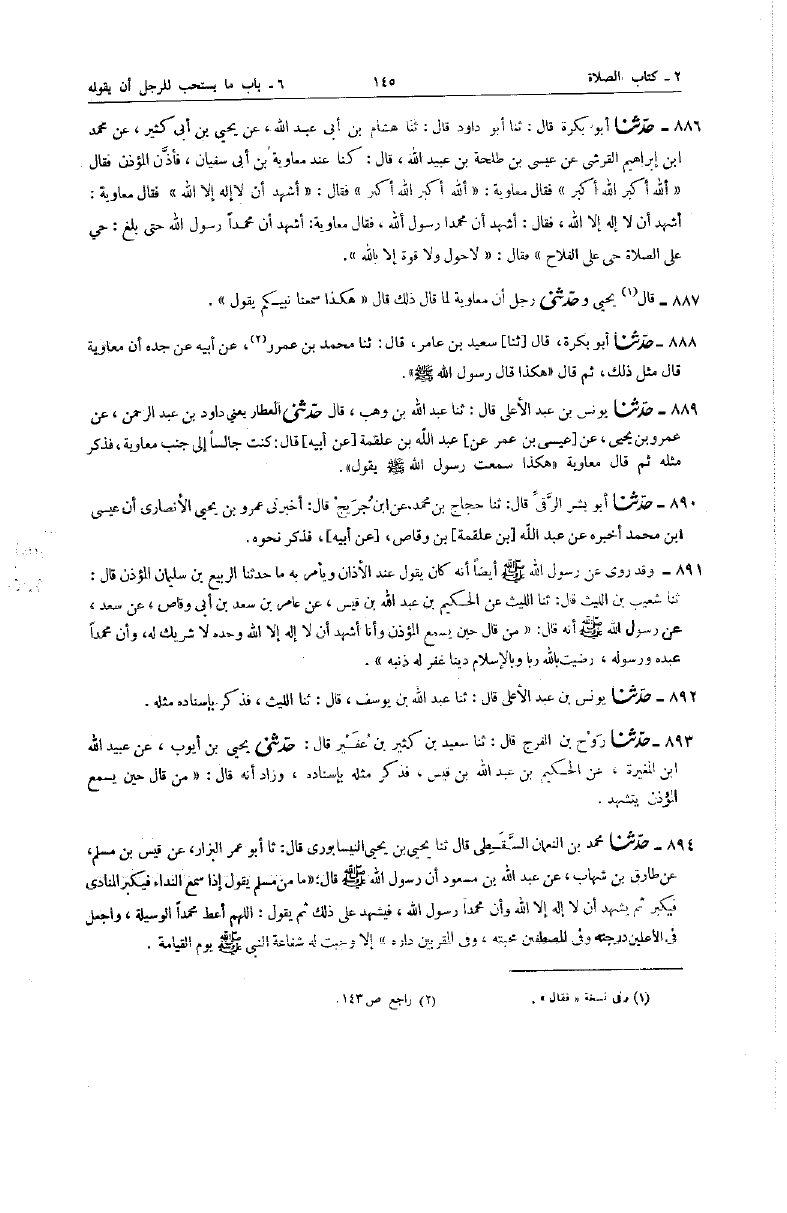 ٢ ـ كتاب الصلاة ١٤٥ ٦ ـ باب ما يستحب للرجل أن يقوله
٨٨٦ ـ حدثنا أبو بكرة قال : ثنا أبو داود قال : ثنا هشام بن أبى عبد الله ، عن يحيي بن أبى كثير ، عن محمد
ابن إبراهيم القرشي عن عيسى بن طلحة بن عبيد الله ، قال : كنا عند معاوية بن أبى سفيان ، فأذَّن المؤذن فقال
« ألله أكبر الله أكبر » فقال معاوية : « ألله أكبر الله أكبر » فقال : « أشهد أن لاإله إلا الله » فقال معاوية :
أشهد أن لا إله إلا الله ، فقال : أشهد أن محمدا رسول ألله ، فقال معاوية: أشهد أن محمداً رسول الله حتى بلغ : حي
على الصلاة حى على الفلاح » فقال : « لاحول ولا قوة إلا بالله ».
٨٨٧ ـ قال(١) يحيي وحدثنى رجل أن معاوية لما قال ذلك قال « هكذا سمعنا نبيكم يقول » .
٨٨٨ ـ حدثنا أبو بكرة، قال [ثنا] سعيد بن عامر، قال : ثنا محمد بن عمرو(٢)، عن أبيه عن جده أن معاوية
قال مثل ذلك، ثم قال «هكذا قال رسول الله ﷺ».
٨٨٩ ـ حدثنا يونس بن عبد الأعلى قال : ثنا عبد الله بن وهب ، قال حدثنى العطار يعني داود بن عبد الرحمن ، عن
عمرو بن يحيى ، عن [عيسى بن عمر عن] عبد اللّه بن علقمة [عن أبيه] قال: كنت جالساً إلى جنب معاوية، فذكر
مثله ثم قال معاوية «هكذا سمعت رسول الله ﷺ يقول».
٨٩٠ ـ حدثنا أبو بشر الرَّقىّ قال: ثنا حجاج بن محمد عن ابن جُريج قال: أخبرنى عمرو بن يحيي الأنصارى أن عيسى
ابن محمد أخبره عن عبد اللّه [بن علقمة] بن وقاص، [عن أبيه]، فذكر نحوه.
٨٩١ ـ وقد روى عن رسول الله ﷺ أيضاً أنه كان يقول عند الأذان ويأمر به ما حدثنا الربيع بن سليمان المؤذن قال :
ثنا شعيب بن الليث قال: ثنا الليث عن الحكيم بن عبد الله بن قيس ، عن عامر بن سعد بن أبى وقاص ، عن سعد ،
عن رسول الله ﷺ أنه قال: « من قال حين يسمع المؤذن وأنا أشهد أن لا إله إلا الله وحده لا شريك له، وأن محمداً
عبده ورسوله ، رضيت بالله ربا وبالإسلام دينا غفر له ذنبه » .
٨٩٢ ـ حدثنا يونس بن عبد الأعلى قال : ثنا عبد الله بن يوسف ، قال : ثنا الليث ، فذكر بإسناده مثله .
٨٩٣ ـ حدثنا رَوْح بن الفرج قال : ثنا سعيد بن كثير بن عُفَيْر قال : حدثنى يحيى بن أيوب ، عن عبيد الله
ابن المغيرة ، عن الحكيم بن عبد الله بن قيس ، فذكر مثله بإسناده ، وزاد أنه قال : « من قال حين يسمع
المؤذن يتشهد .
٨٩٤ ـ حدثنا محمد بن النعمان السَّقَطِى قال ثنا يحيى بن يحيى النيسابورى قال: ثا أبو عمر البزار، عن قيس بن مسلم،
عن طارق بن شهاب ، عن عبد الله بن مسعود أن رسول الله ﷺ قال: «ما من مسلم يقول إذا سمع النداء فيكبر المنادى
فيكبر ثم يشهد أن لا إله إلا الله وأن محمداً رسول الله ، فيشهد على ذلك ثم يقول : اللهم أعط محمداً الوسيلة ، واجعل
فى الأعلين درجته وفى المصطفين محبته ، وفى المقربين داره » إلا وجبت له شفاعة النبى ﷺ يوم القيامة .
(١) وفى نسخة « فقال » . (٢) راجع ص ١٤٣.